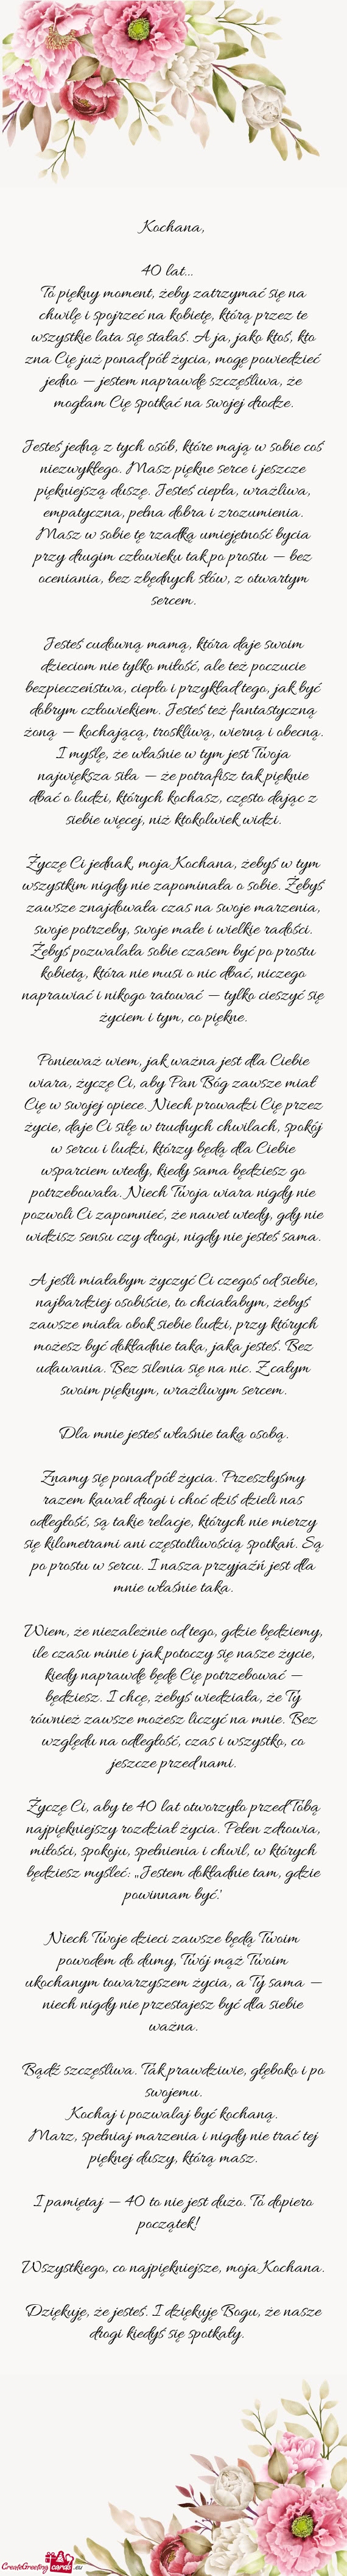 Kochana,
40 lat...
To piękny moment, żeby zatrzymać się na
chwilę i spojrzeć na kobietę, którą przez te
wszystkie lata się stałaś. A ja, jako ktoś, kto
zna Cię już ponad pół życia, mogę powiedzieć
jedno – jestem naprawdę szczęśliwa, że
mogłam Cię spotkać na swojej drodze.
Jesteś jedną z tych osób, które mają w sobie coś
niezwykłego. Masz piękne serce i jeszcze
piękniejszą duszę. Jesteś ciepła, wrażliwa,
empatyczna, pełna dobra i zrozumienia.
Masz w sobie tę rzadką umiejętność bycia
przy drugim człowieku tak po prostu – bez
oceniania, bez zbędnych słów, z otwartym
sercem.
Jesteś cudowną mamą, która daje swoim
dzieciom nie tylko miłość, ale też poczucie
bezpieczeństwa, ciepło i przykład tego, jak być
dobrym człowiekiem. Jesteś też fantastyczną
żoną – kochającą, troskliwą, wierną i obecną.
I myślę, że właśnie w tym jest Twoja
największa siła – że potrafisz tak pięknie
dbać o ludzi, których kochasz, często dając z
siebie więcej, niż ktokolwiek widzi.
Życzę Ci jednak, moja Kochana, żebyś w tym
wszystkim nigdy nie zapominała o sobie. Żebyś
zawsze znajdowała czas na swoje marzenia,
swoje potrzeby, swoje małe i wielkie radości.
Żebyś pozwalała sobie czasem być po prostu
kobietą, która nie musi o nic dbać, niczego
naprawiać i nikogo ratować – tylko cieszyć się
życiem i tym, co piękne.
Ponieważ wiem, jak ważna jest dla Ciebie
wiara, życzę Ci, aby Pan Bóg zawsze miał
Cię w swojej opiece. Niech prowadzi Cię przez
życie, daje Ci siłę w trudnych chwilach, spokój
w sercu i ludzi, którzy będą dla Ciebie
wsparciem wtedy, kiedy sama będziesz go
potrzebowała. Niech Twoja wiara nigdy nie
pozwoli Ci zapomnieć, że nawet wtedy, gdy nie
widzisz sensu czy drogi, nigdy nie jesteś sama.
A jeśli miałabym życzyć Ci czegoś od siebie,
najbardziej osobiście, to chciałabym, żebyś
zawsze miała obok siebie ludzi, przy których
możesz być dokładnie taka, jaka jesteś. Bez
udawania. Bez silenia się na nic. Z całym
swoim pięknym, wrażliwym sercem.
Dla mnie jesteś właśnie taką osobą.
Znamy się ponad pół życia. Przeszłyśmy
razem kawał drogi i choć dziś dzieli nas
odległość, są takie relacje, których nie mierzy
się kilometrami ani częstotliwością spotkań. Są
po prostu w sercu. I nasza przyjaźń jest dla
mnie właśnie taka.
Wiem, że niezależnie od tego, gdzie będziemy,
ile czasu minie i jak potoczy się nasze życie,
kiedy naprawdę będę Cię potrzebować –
będziesz. I chcę, żebyś wiedziała, że Ty
również zawsze możesz liczyć na mnie. Bez
względu na odległość, czas i wszystko, co
jeszcze przed nami.
Życzę Ci, aby te 40 lat otworzyło przed Tobą
najpiękniejszy rozdział życia. Pełen zdrowia,
miłości, spokoju, spełnienia i chwil, w których
będziesz myśleć: „Jestem dokładnie tam, gdzie
powinnam być.”
Niech Twoje dzieci zawsze będą Twoim
powodem do dumy, Twój mąż Twoim
ukochanym towarzyszem życia, a Ty sama –
niech nigdy nie przestajesz być dla siebie
ważna.
Bądź szczęśliwa. Tak prawdziwie, głęboko i po
swojemu.
Kochaj i pozwalaj być kochaną.
Marz, spełniaj marzenia i nigdy nie trać tej
pięknej duszy, którą masz.
I pamiętaj – 40 to nie jest dużo. To dopiero
początek!
Wszystkiego, co najpiękniejsze, moja Kochana.
Dziękuję, że jesteś. I dziękuję Bogu, że nasze
drogi kiedyś się spotkały.
CreateGreetingcards.eu